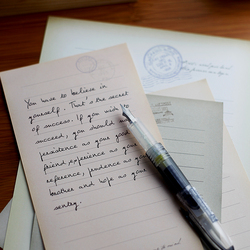 You have to believe in
yourself. That's the secret
of success. If you wish to
succeed, you should use
persistence as your good
friend experience as your
reference, prudence as your
brother and hope as your
sentry.